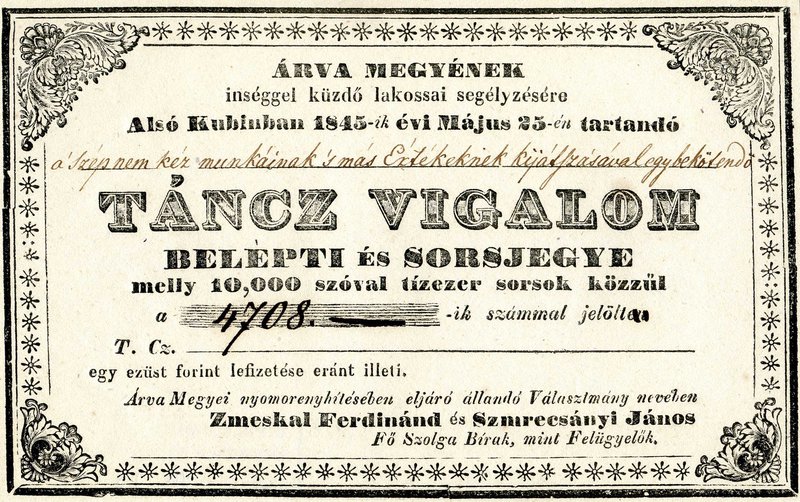 ÁRVA MEGYÉNEK
inséggel küzdő lakossai segélyzésére
Alsó Kubinban 1845-ik évi Május 25-én tartandó
a' Szépnem kéz munkáinak 's más Értékeknek kijátszásával egybekötendő
TÁNCZ VIGALOM
BELÉPTI és SORSJEGYE
melly 10,000 szóval tízezer sorsok közzűl
a 4708. -ik számmal jelölten
T. Cz.
egy ezüst forint lefizetése eránt illeti.
Árva Megyei nyomorenyhitésében eljáró állandó Választmány nevében
Zmeskal Ferdinánd és Szmrecsányi János
Fő Szolga Bírak, mint Felügyelők.